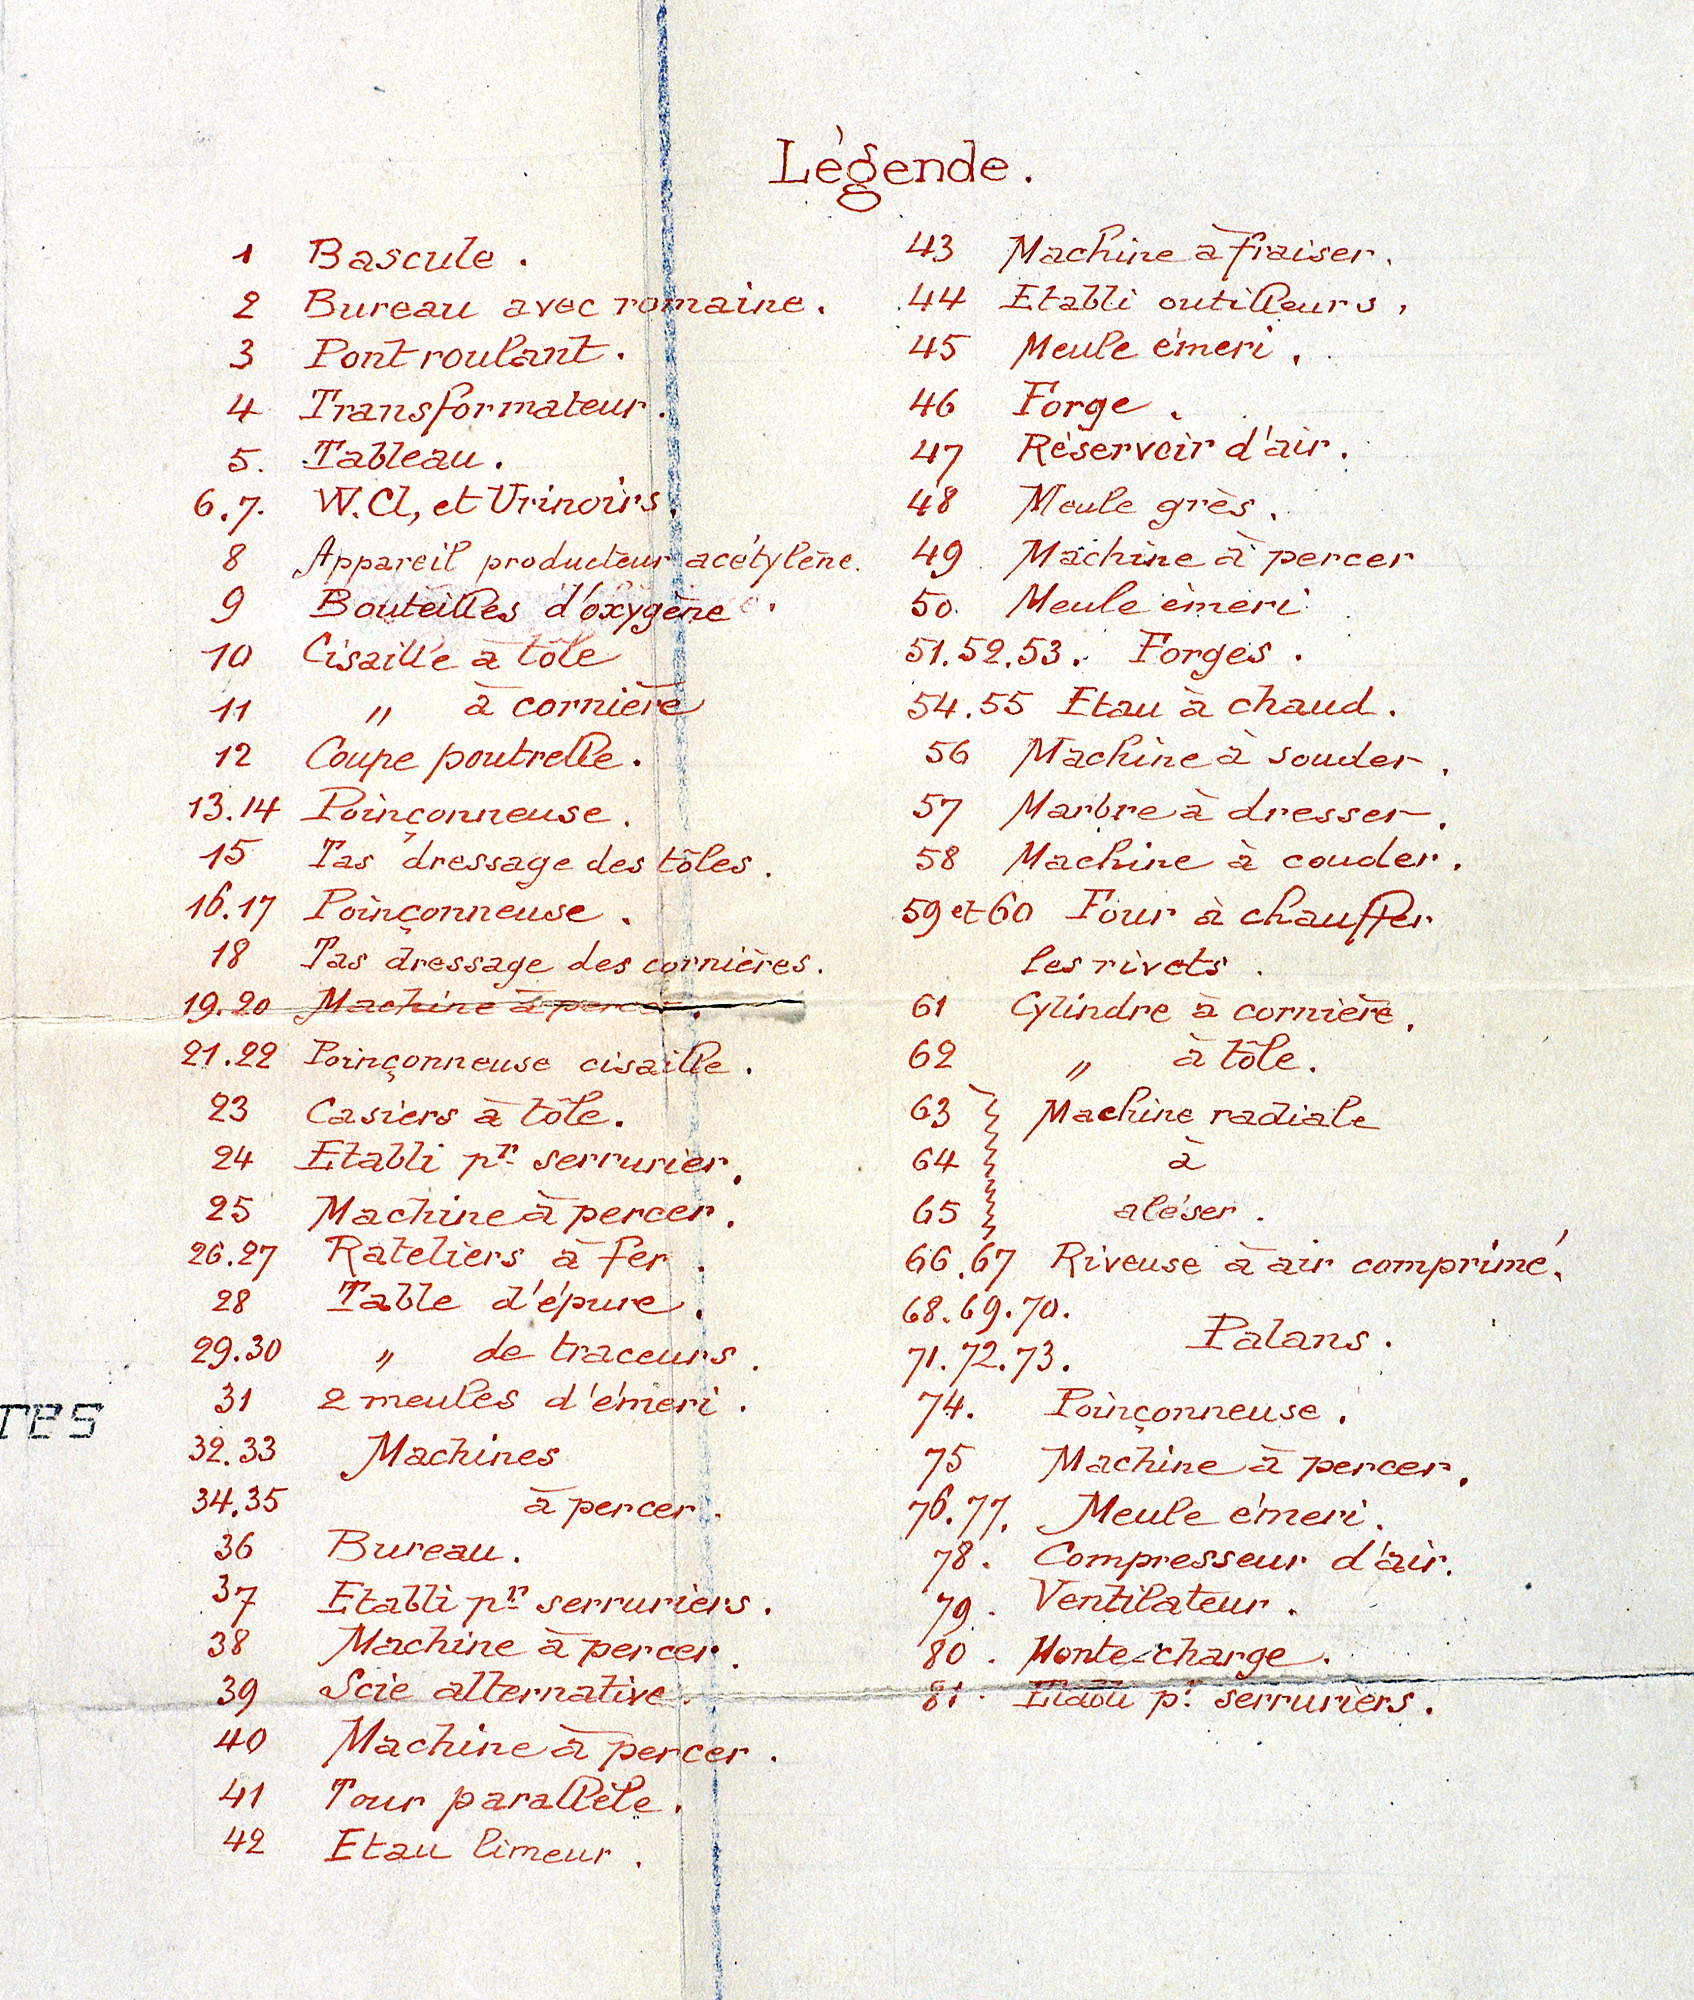 Légende.
1 Bascule.
2 Bureau avec romaine.
3 Pont roulant.
4 Transformateur.
5. Tableau.
6.7. W.Cl, et Urinoirs.
8 Appareil producteur acétylène.
9 Bouteilles d'oxygène.
10 Cisaille à tôle
11 " à cornière
12 Coupe poutrelle.
13.14 Poinçonneuse.
15 Tas dressage des tôles.
16.17 Poinçonneuse.
18 Tas dressage des cornières.
19.20 Machine à percer.
21.22 Poinçonneuse cisaille.
23 Casiers à tôle.
24 Etabli pr serrurier.
25 Machine à percer.
26.27 Rateliers à fer.
28 Table d'épure.
29.30 " de traceurs.
31 2 meules d'émeri.
32.33 Machines
34.35 à percer.
36 Bureau.
37 Etabli pr serruriers.
38 Machine à percer.
39 Scie alternative.
40 Machine à percer.
41 Tour parallèle.
42 Etau limeur.
43 Machine à fraiser.
44 Etabli outilleurs.
45 Meule émeri.
46 Forge.
47 Réservoir d'air.
48 Meule grès.
49 Machine à percer
50. Meule émeri
51.52.53. Forges.
54.55 Etau à chaud.
56 Machine à souder.
57 Marbre à dresser.
58 Machine à couder.
59 et 60 Four à chauffer
les rivets.
61 Cylindre à cornière.
62 " à tôle.
63 Machine radiale
64 à
65 aléser.
66.67 Riveuse à air comprimé.
68.69.70.
Palans.
71.72.73.
74. Poinçonneuse.
75 Machine à percer.
76.77. Meule émeri.
78. Compresseur d'air.
79. Ventilateur.
80. Monte-charge.
81. Etabli pr serruriers.
res